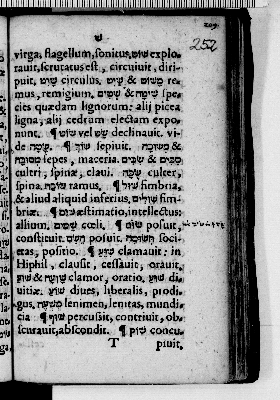 ש
209.
252
virga, flagellum, sonitus, שוט explo-
rauit, scrutatus est, circuiuit, diri-
puit, שוט circulus, משוט & שיט re-
mus, remigium. שיטה & שיטים spe-
cies quædam lignorum: alij picea
ligna, alij cedrum electam expo-
nunt. ¶ שוט vel שט declinauit. vi-
de שטה. ¶ שוך sepiuit. משוכה &
מסוכה sepes, maceria. שכים & סכים
cultri, spinæ, claui. שכה culter,
spina, שוכה ramus. ¶ שול fimbria,
& aliud aliquid inferius, שולים fim-
briæ. ¶ שום æstimatio, intellectus:
allium. שמים cœli. ¶ שום posuit,
constituit. השים posuit. תשומה soci-
etas, positio. ¶ שוע clamauit: in
Hiphil, clausit, cessauit, orauit.
שוע & שועה clamor, oratio, שוע di-
uitiæ. שוע diues, liberalis, prodi-
gus. lenimen, lenitas, mundi-
cia ¶ שוף percussit, contriuit, ob-
scurauit, abscondit. ¶ שוק concu-
T piuit,